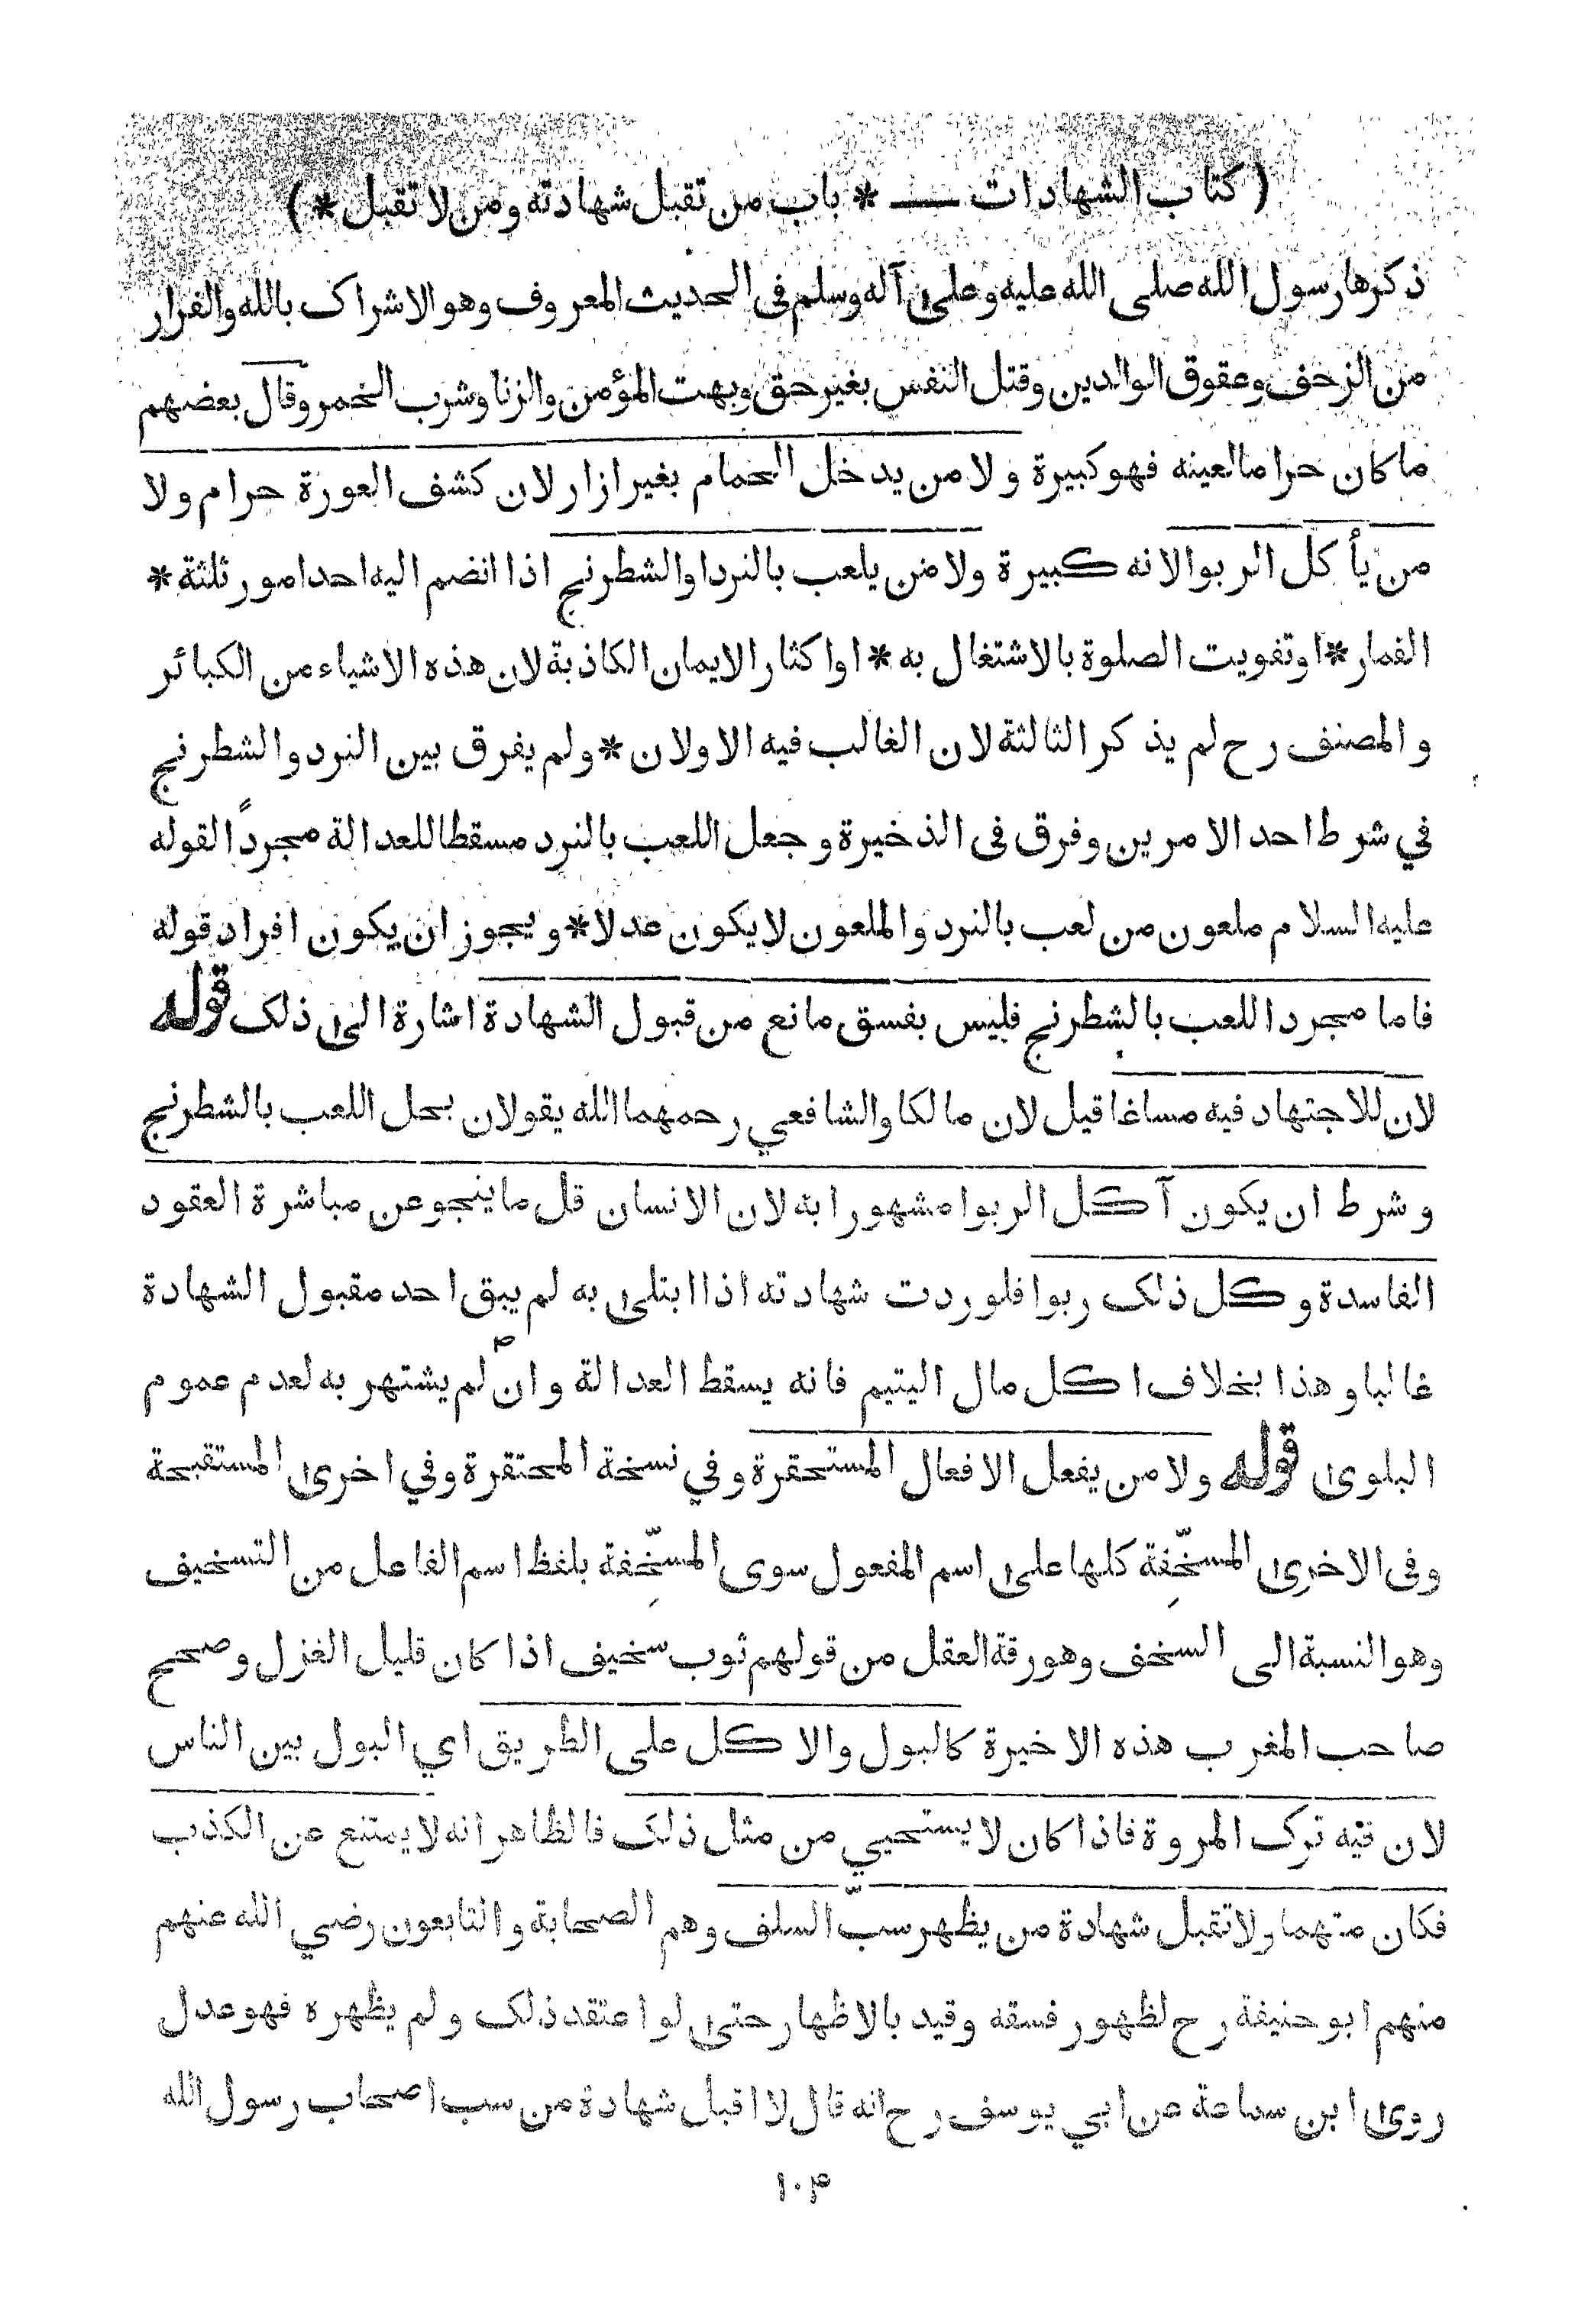 ( كتاب الشهادات — * باب من تقبل شهادته ومن لا تقبل * )
ذكرها رسول الله صلى الله عليه وعلى آله وسلم فى الحديث المعروف وهو الاشراك بالله والفرار
من الزحف وعقوق الوالدين وقتل النفس بغير حق وبهت المؤمن والزنا وشرب الخمر وقال بعضهم
ما كان حراما لعينه فهو كبيرة ولا من يدخل الحمام بغير ازار لان كشف العورة حرام ولا
من يأكل الربوا لانه كبيرة ولا من يلعب بالنرد او الشطرنج اذا انضم اليه احد امور ثلثة *
القمار * او تفويت الصلوة بالاشتغال به * او اكثار الايمان الكاذبة لان هذه الاشياء من الكبائر
و المصنف رح لم يذكر الثالثة لان الغالب فيه الاولان * ولم يفرق بين النرد والشطرنج
في شرط احد الامرين وفرق فى الذخيرة وجعل اللعب بالنرد مسقطا للعدالة مجردًا لقوله
عليه السلام ملعون من لعب بالنرد والملعون لا يكون عدلا * ويجوز ان يكون افراد قوله
فاما مجرد اللعب بالشطرنج فليس بفسق مانع من قبول الشهادة اشارة الى ذلك قوله
لان للاجتهاد فيه مساغا قيل لان مالكا والشافعي رحمهما الله يقولان بحل اللعب بالشطرنج
و شرط ان يكون آكل الربوا مشهورا به لان الانسان قل ما ينجو عن مباشرة العقود
الفاسدة وكل ذلك ربوا فلو ردت شهادته اذا ابتلى به لم يبق احد مقبول الشهادة
غالبا وهذا بخلاف اكل مال اليتيم فانه يسقط العدالة وان لم يشتهر به لعدم عموم
البلوى قوله ولا من يفعل الافعال المستحقرة وفي نسخة المحتقرة وفي اخرى المستقبحة
وفى الاخرى المسخِّفة كلها على اسم المفعول سوى المسخِّفة بلفظ اسم الفاعل من التسخيف
وهو النسبة الى السخف وهو رقة العقل من قولهم ثوب سخيف اذا كان قليل الغزل وصحح
صاحب المغرب هذه الاخيرة كالبول والاكل على الطريق اي البول بين الناس
لان فيه ترك المروة فاذا كان لا يستحيي من مثل ذلك فالظاهر انه لا يمتنع عن الكذب
فكان متهما ولا تقبل شهادة من يظهر سبّ السلف وهم الصحابة والتابعون رضي الله عنهم
منهم ابو حنيفة رح لظهور فسقه وقيد بالاظهار حتى لو اعتقد ذلك ولم يظهره فهو عدل
روى ابن سماعة عن ابي يوسف رح انه قال لا اقبل شهادة من سب اصحاب رسول الله
۱۰۴